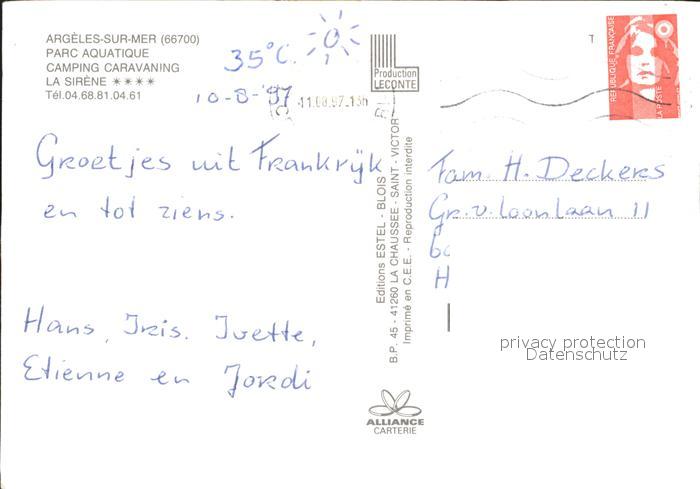 ARGÈLES-SUR-MER (66700)
PARC AQUATIQUE
CAMPING CARAVANING
LA SIRÈNE ✶✶✶✶
Tél.04.68.81.04.61
35°C.
10-8-'97
11.08.97.15h
Production
LECONTE
T
REPUBLIQUE FRANÇAISE
LA POSTE
Groetjes uit Frankrijk
en tot ziens.
Hans, Iris. Ivette,
Etienne en Jordi
Editions ESTEL - BLOIS
B.P. 45 - 41260 LA CHAUSSEE - SAINT - VICTOR
Imprimé en C.E.E. - Reproduction interdite
ALLIANCE
CARTERIE
Fam. H. Deckers
Gr. v. Loonlaan 11
H
privacy protection
Datenschutz